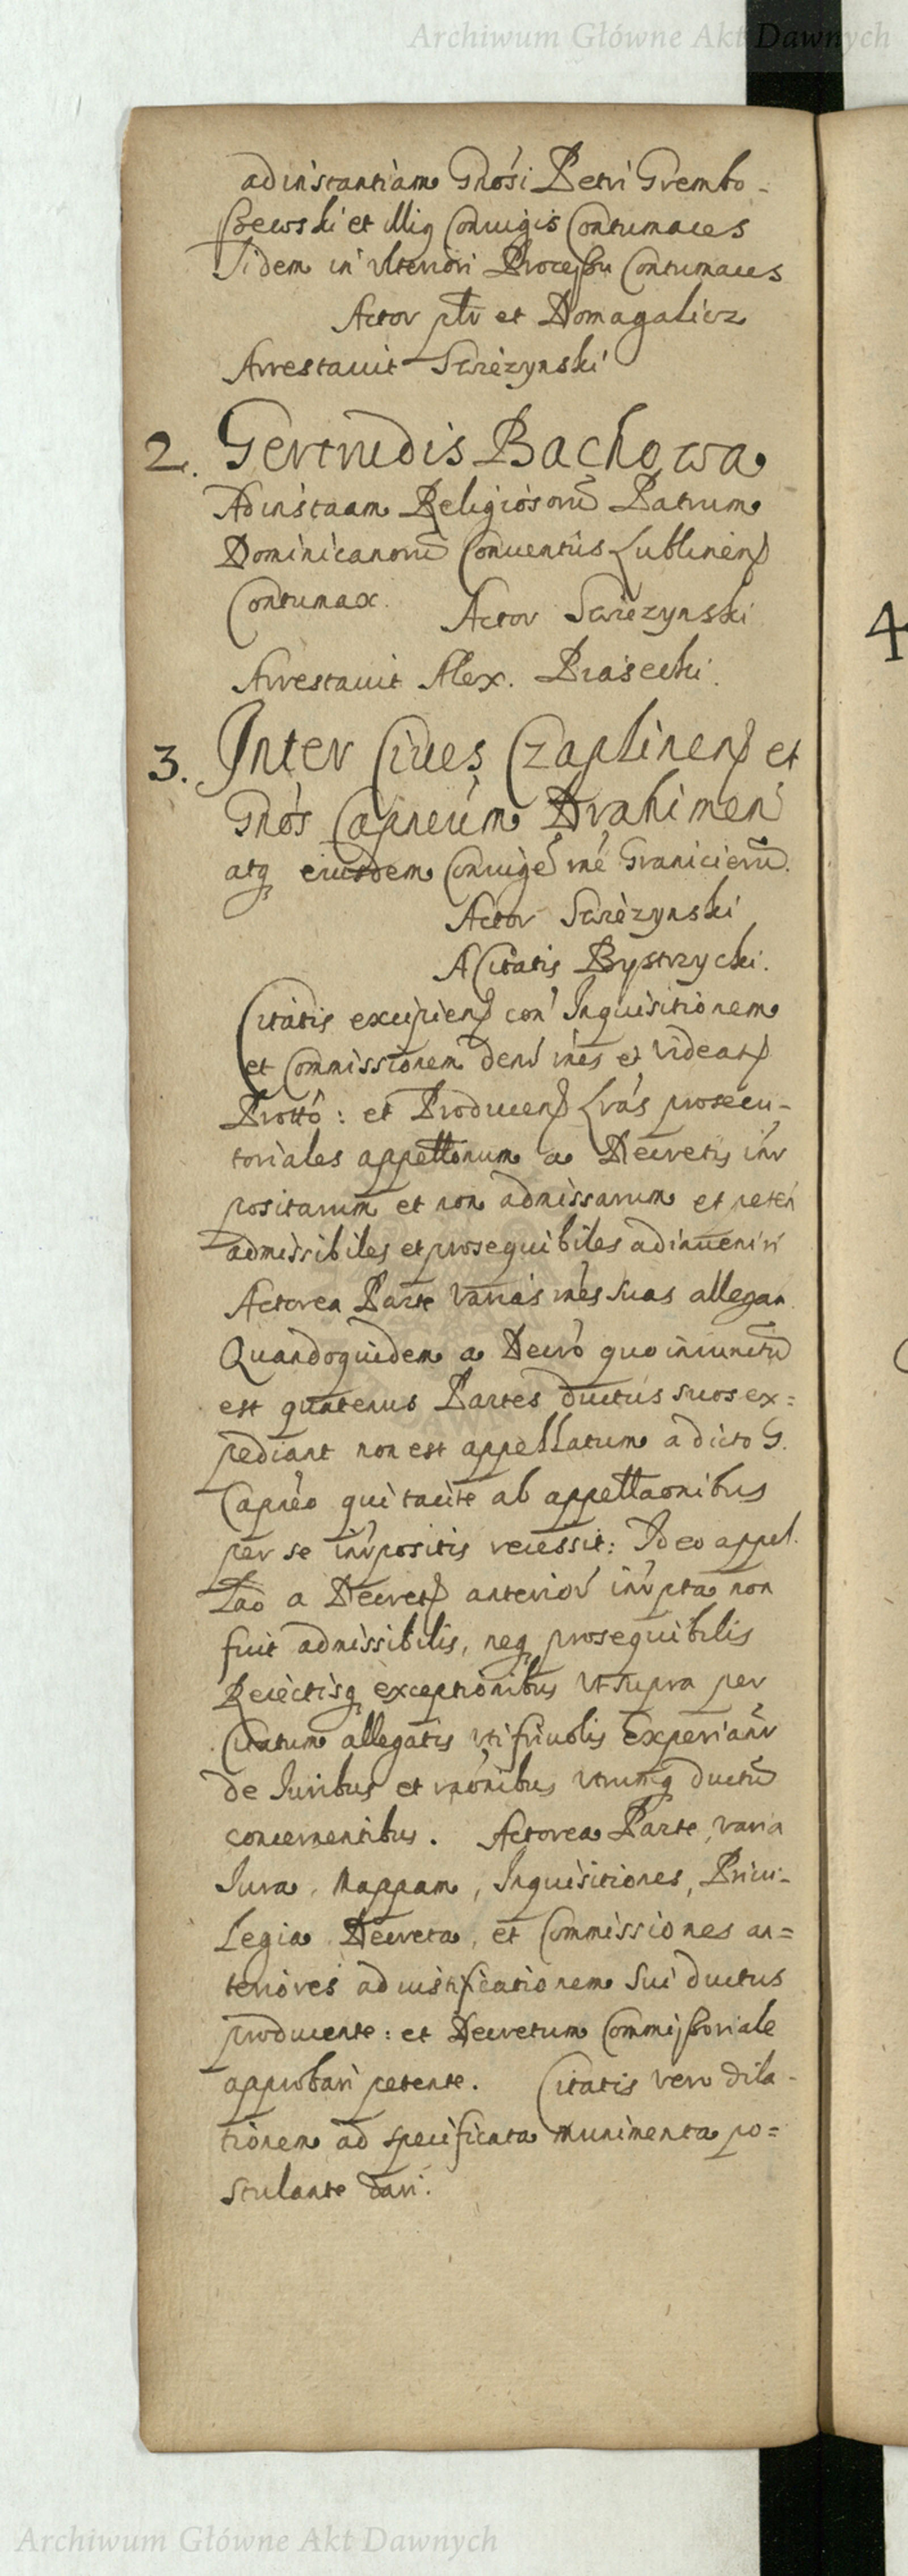 Archiwum Główne Akt Dawnych
ad instantiam Gnosi Petri Grembo-
szewski et illiq Coniugis Contumaces
Iidem in vlteriori Processu Contumaces
Actor ptr et Domagalicz
Arrestauit Swiezynski
2. Gertrudis Bachowa
Ad instaam Religiosorū Patrum
Dominicanorū Conuentus Lublinen
Contumax. Actor Swiezynski
Arrestauit Alex. Piasecki.
3. Inter Ciues Czaplinen et
Gnos Capneum Drahimen
atq eiusdem Coniugē rnē Granicierū.
Actor Swiezynski
A Citatis Bystrzycki.
Citatis excipien con Inquisitionem
et Commissionem den rnes et videat
Protto: et Producen Lras prosecu-
toriales appettonum a Decretis inr
positarum et non admissarum et peten
admissibiles et prosequibiles adinueniri
Actorea Parte varias rnes suas allegan
Quandoquidem a Decro quo iniunctū
est quatenus Partes ductus suos ex=
pediant non est appellatum a dicto G.
Capneo qui tacite ab appettaonibus
per se inrpositis recessit: Ideo appel.
Lao a Decret anterior inrpta non
fuit admissibilis, neq prosequibilis
Reiectisq exceptionibus vt supra per
Citatum allegatis vti friuolis Experianr
de Iuribus et raonibus vtrumq ductū
concernentibus. Actorea Parte, varia
Iura, Mappam, Inquisitiones, Priui-
Legia Decreta, et Commissiones an=
teriores ad iustificationem Sui ductus
producente: et Decretum Commissoriale
approbari petente. Citatis vero dila-
tionem ad specificata munimenta po=
stulante dari.
4
Archiwum Główne Akt Dawnych